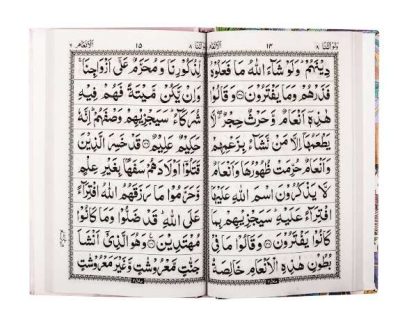 ولو اننا ٨
دِيْنَهُمْ ؕ وَلَوْ شَآءَ اللّٰهُ مَا فَعَلُوْهُ
فَذَرْهُمْ وَمَا يَفْتَرُوْنَ ۝ وَقَالُوْا
هٰذِهٖۤ اَنْعَامٌ وَّحَرْثٌ حِجْرٌ ۖ لَّا
يَطْعَمُهَاۤ اِلَّا مَنْ نَّشَآءُ بِزَعْمِهِمْ
وَاَنْعَامٌ حُرِّمَتْ ظُهُوْرُهَا وَاَنْعَامٌ
لَّا يَذْكُرُوْنَ اسْمَ اللّٰهِ عَلَيْهَا
افْتِرَآءً عَلَيْهِ ؕ سَيَجْزِيْهِمْ بِمَا
كَانُوْا يَفْتَرُوْنَ ۝ وَقَالُوْا مَا فِيْ
بُطُوْنِ هٰذِهِ الْاَنْعَامِ خَالِصَةٌ
١٥ الانعام ٦
لِّذُكُوْرِنَا وَمُحَرَّمٌ عَلٰۤى اَزْوَاجِنَا ۚ
وَاِنْ يَّكُنْ مَّيْتَةً فَهُمْ فِيْهِ
شُرَكَآءُ ؕ سَيَجْزِيْهِمْ وَصْفَهُمْ ؕ اِنَّهٗ
حَكِيْمٌ عَلِيْمٌ ۝ قَدْ خَسِرَ الَّذِيْنَ
قَتَلُوْۤا اَوْلَادَهُمْ سَفَهًۢا بِغَيْرِ عِلْمٍ
وَّحَرَّمُوْا مَا رَزَقَهُمُ اللّٰهُ افْتِرَآءً
عَلَى اللّٰهِ ؕ قَدْ ضَلُّوْا وَمَا كَانُوْا
مُهْتَدِيْنَ ۝ وَهُوَ الَّذِيْۤ اَنْشَاَ
جَنّٰتٍ مَّعْرُوْشٰتٍ وَّغَيْرَ مَعْرُوْشٰتٍ